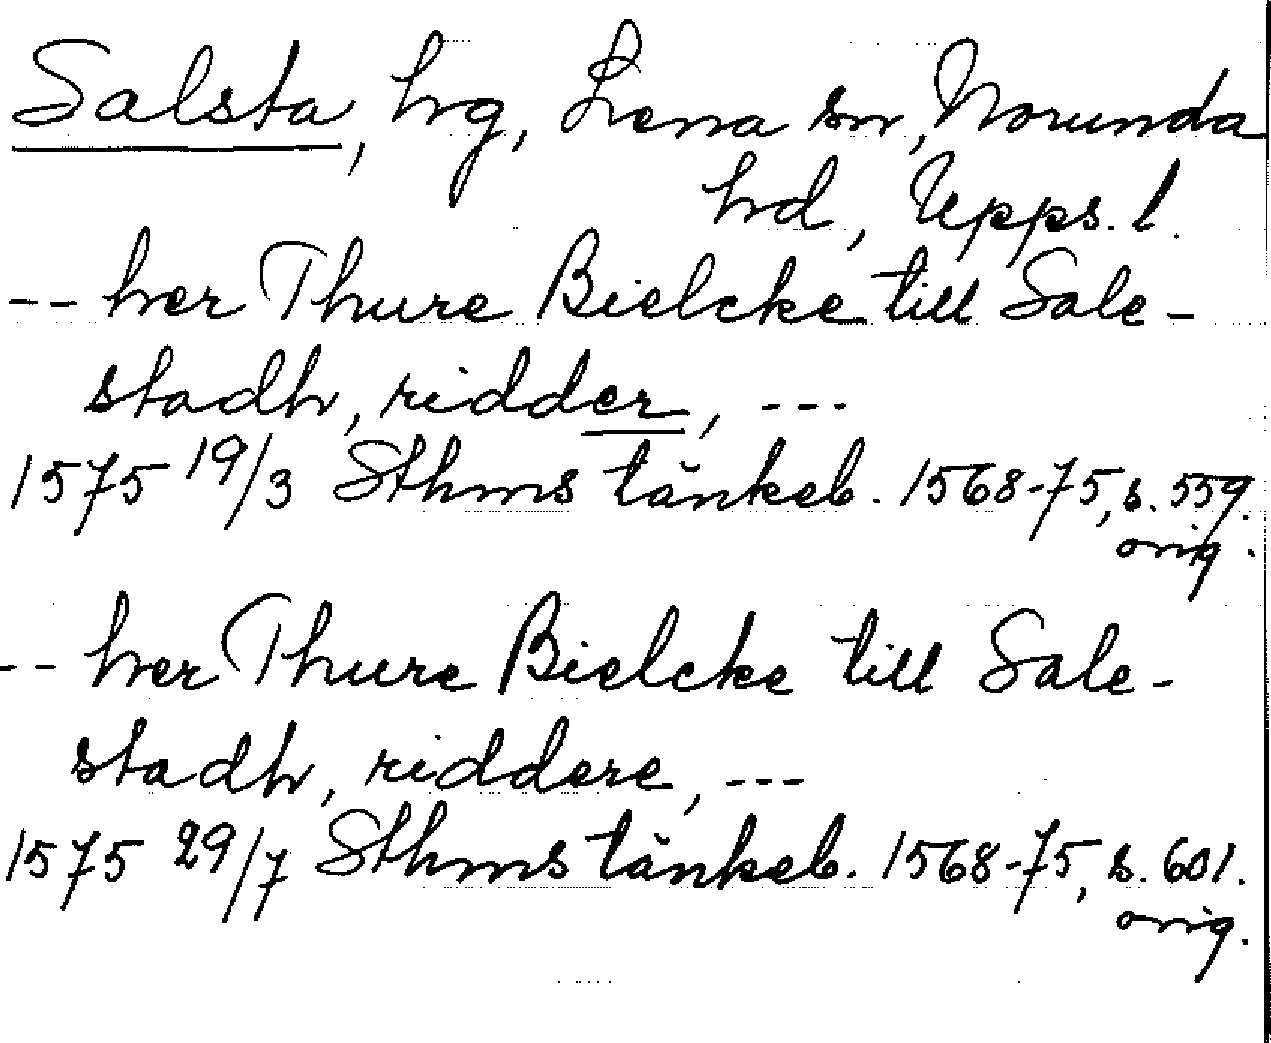 Salsta, hrg, Lena sn, Norunda
hd, Upps. l.
-- her Thure Bielcke till Sale-
stadh, ridder, ---
1575 19/3 Sthms tänkeb. 1568-75, s. 559.
orig.
-- her Thure Bielcke till Sale-
stadh, riddere, ---
1575 29/7 Sthms tänkeb. 1568-75, s. 601.
orig.